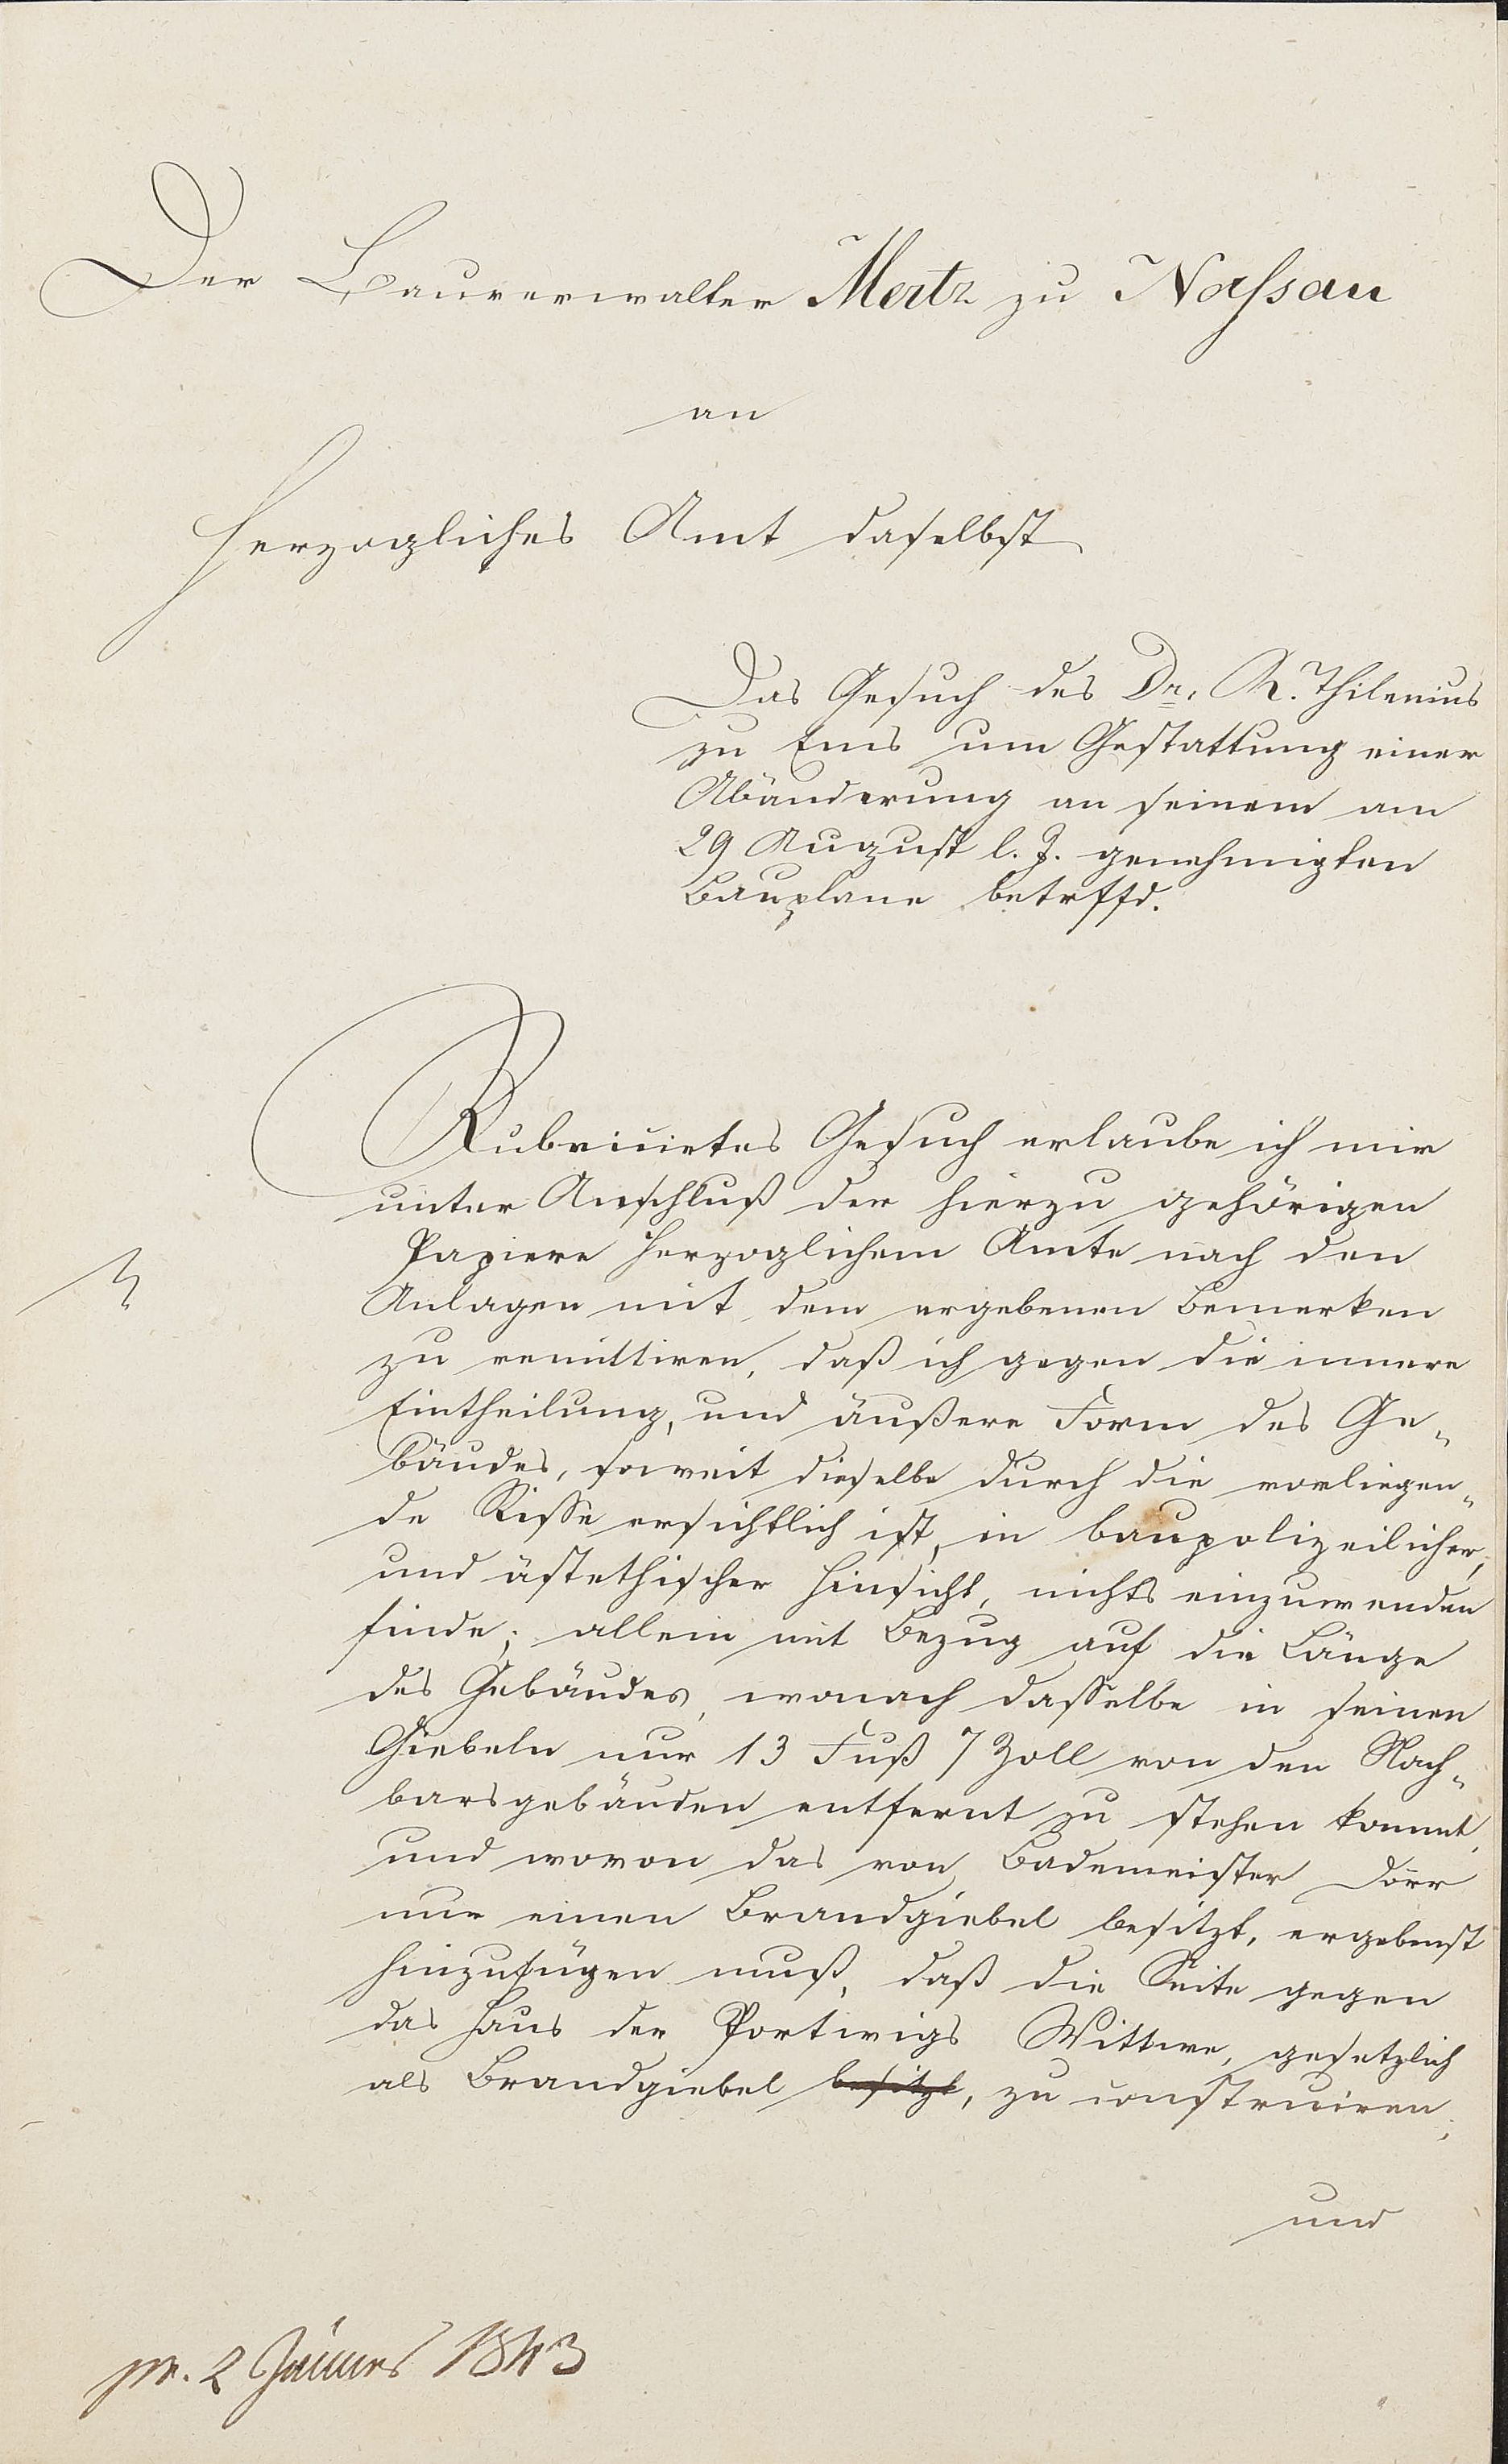 Der Bauverwalter Mertz zu Nassau
an
Herzogliches Amt daselbst
Das Gesuch des Dr. R. Thilenius
zu Ems um Gestattung einer
Abänderung an seinem am
29 August l. J. genehmigten
Bauplane betrffd.
Rubricirtes Gesuch erlaube ich mir
unter Anschluß der hierzu gehörigen
Papiere Herzoglichem Amte nach den
Anlagen mit dem ergebenen Bemerken
zu remittiren, daß ich gegen die innere
Eintheilung, und äußere Form des Ge-
bäudes, soweit dieselbe durch die vorliegen-
de Risse ersichtlich ist, in baupolizeilicher,
und ästethischer Hinsicht, nichts einzuwenden
finde; allein mit Bezug auf die Länge
des Gebäudes, wonach dasselbe in seinen
Giebeln nur 13 Fuß 7 Zoll von den Nach-
barsgebäuden entfernt zu stehen kommt,
und wovon das von Bademeister Dörr
nur einen Brandgiebel besitzt, ergebenst
hinzufügen muß, daß die Seite gegen
das Haus der Portwigs Wittwe, gesetzlich
als Brandgiebel besitzt, zu construiren,
und
pr. 2 Jänner 1843